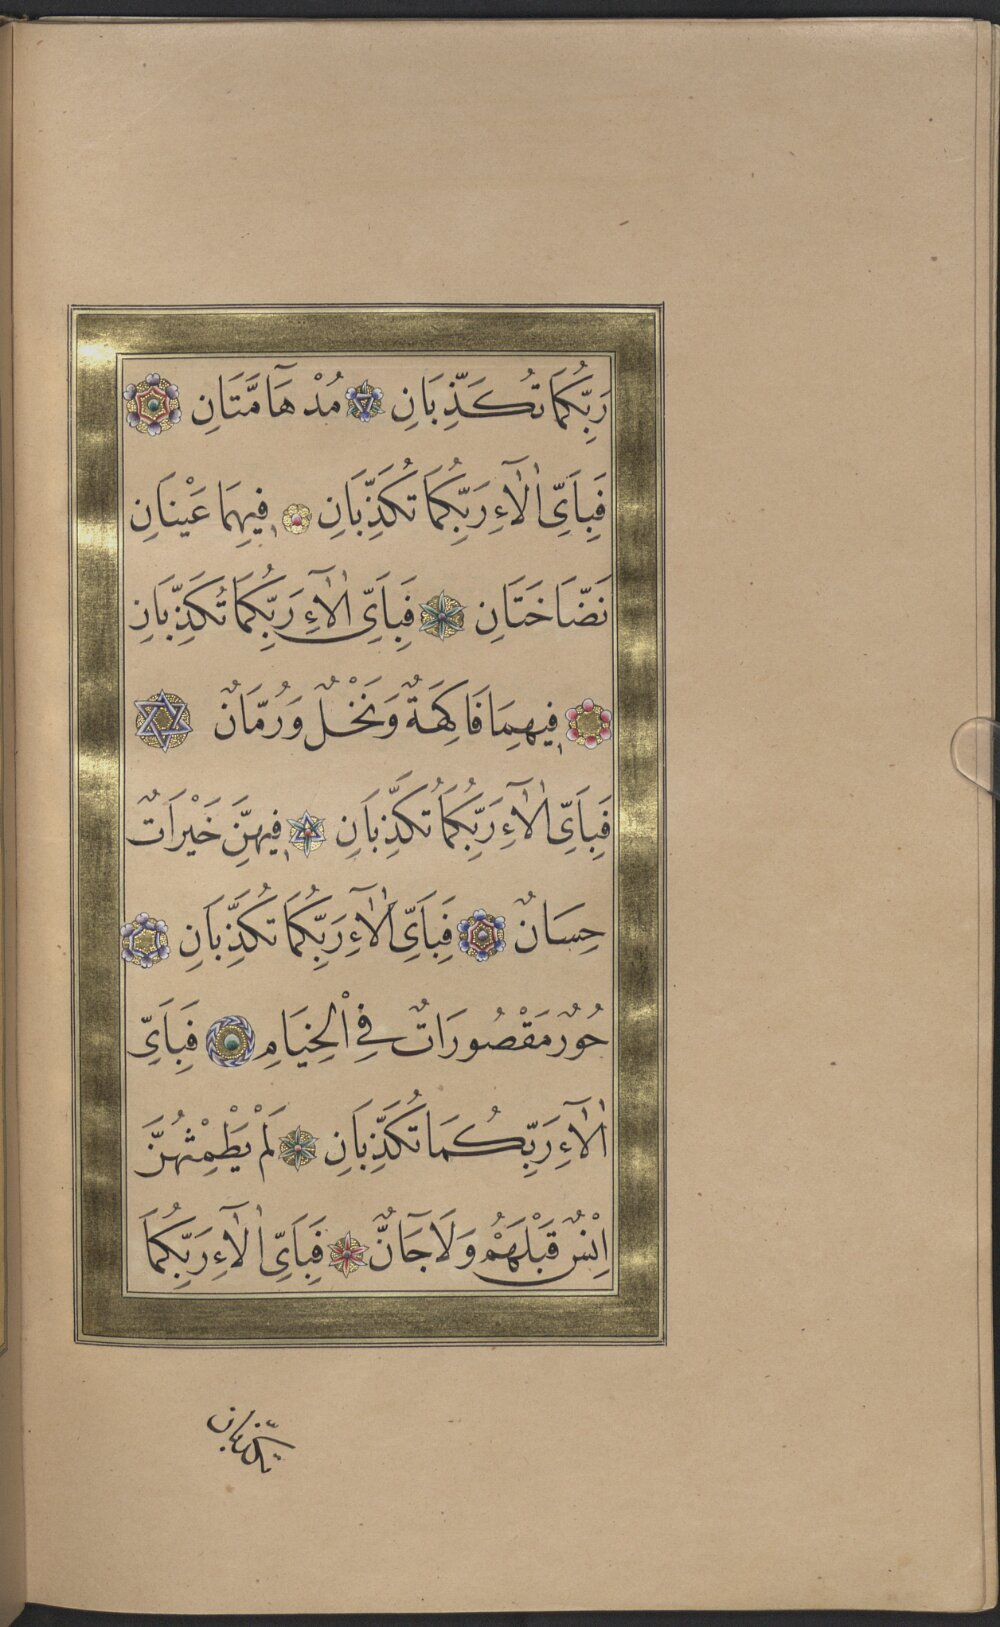 رَبِّكُمَا تُكَذِّبَانِ مُدْهَآمَّتَانِ
فَبِاَىِّ اٰلَآءِ رَبِّكُمَا تُكَذِّبَانِ فِيهِمَا عَيْنَانِ
نَضَّاخَتَانِ فَبِاَىِّ اٰلَآءِ رَبِّكُمَا تُكَذِّبَانِ
فِيهِمَا فَاكِهَةٌ وَنَخْلٌ وَرُمَّانٌ
فَبِاَىِّ اٰلَآءِ رَبِّكُمَا تُكَذِّبَانِ فِيهِنَّ خَيْرَاتٌ
حِسَانٌ فَبِاَىِّ اٰلَآءِ رَبِّكُمَا تُكَذِّبَانِ
حُورٌ مَقْصُورَاتٌ فِى الْخِيَامِ فَبِاَىِّ
اٰلَآءِ رَبِّكُمَا تُكَذِّبَانِ لَمْ يَطْمِثْهُنَّ
اِنْسٌ قَبْلَهُمْ وَلَا جَآنٌّ فَبِاَىِّ اٰلَآءِ رَبِّكُمَا
تكذّبان